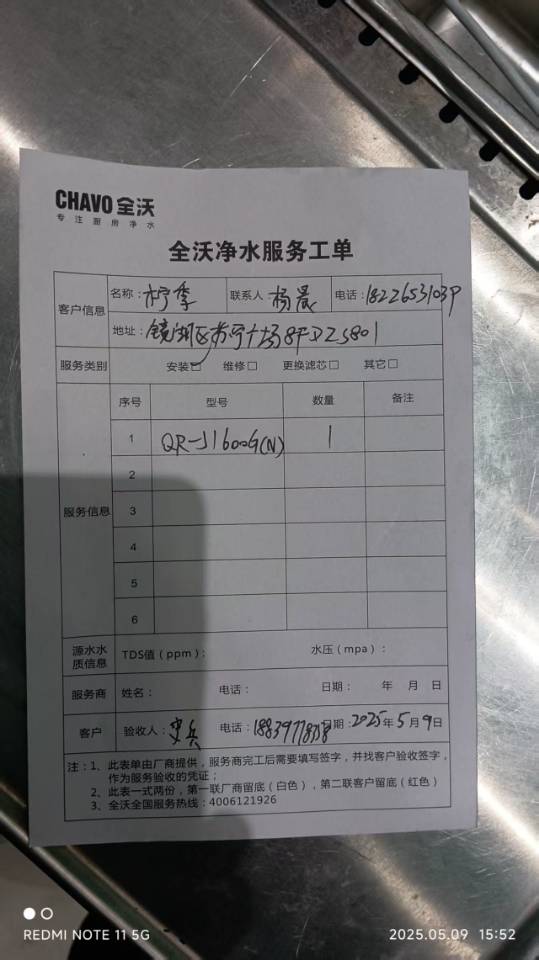 CHAVO 全沃
专注厨房净水
全沃净水服务工单
客户信息 名称：柠季 联系人 杨晨 电话：18226531039
地址：镜湖区苏宁广场8F DZS801
服务类别 安装☑ 维修□ 更换滤芯□ 其它□
服务信息 序号 型号 数量 备注
1 QR-J1600G(N) 1
2
3
4
5
6
源水水质信息 TDS值（ppm）： 水压（mpa）：
服务商 姓名： 电话： 日期： 年 月 日
客户 验收人： 电话： 日期：2025年5月9日
注：1、此表单由厂商提供，服务商完工后需要填写签字，并找客户验收签字，
作为服务验收的凭证；
2、此表一式两份，第一联厂商留底（白色），第二联客户留底（红色）
3、全沃全国服务热线：4006121926
REDMI NOTE 11 5G
2025.05.09 15:52